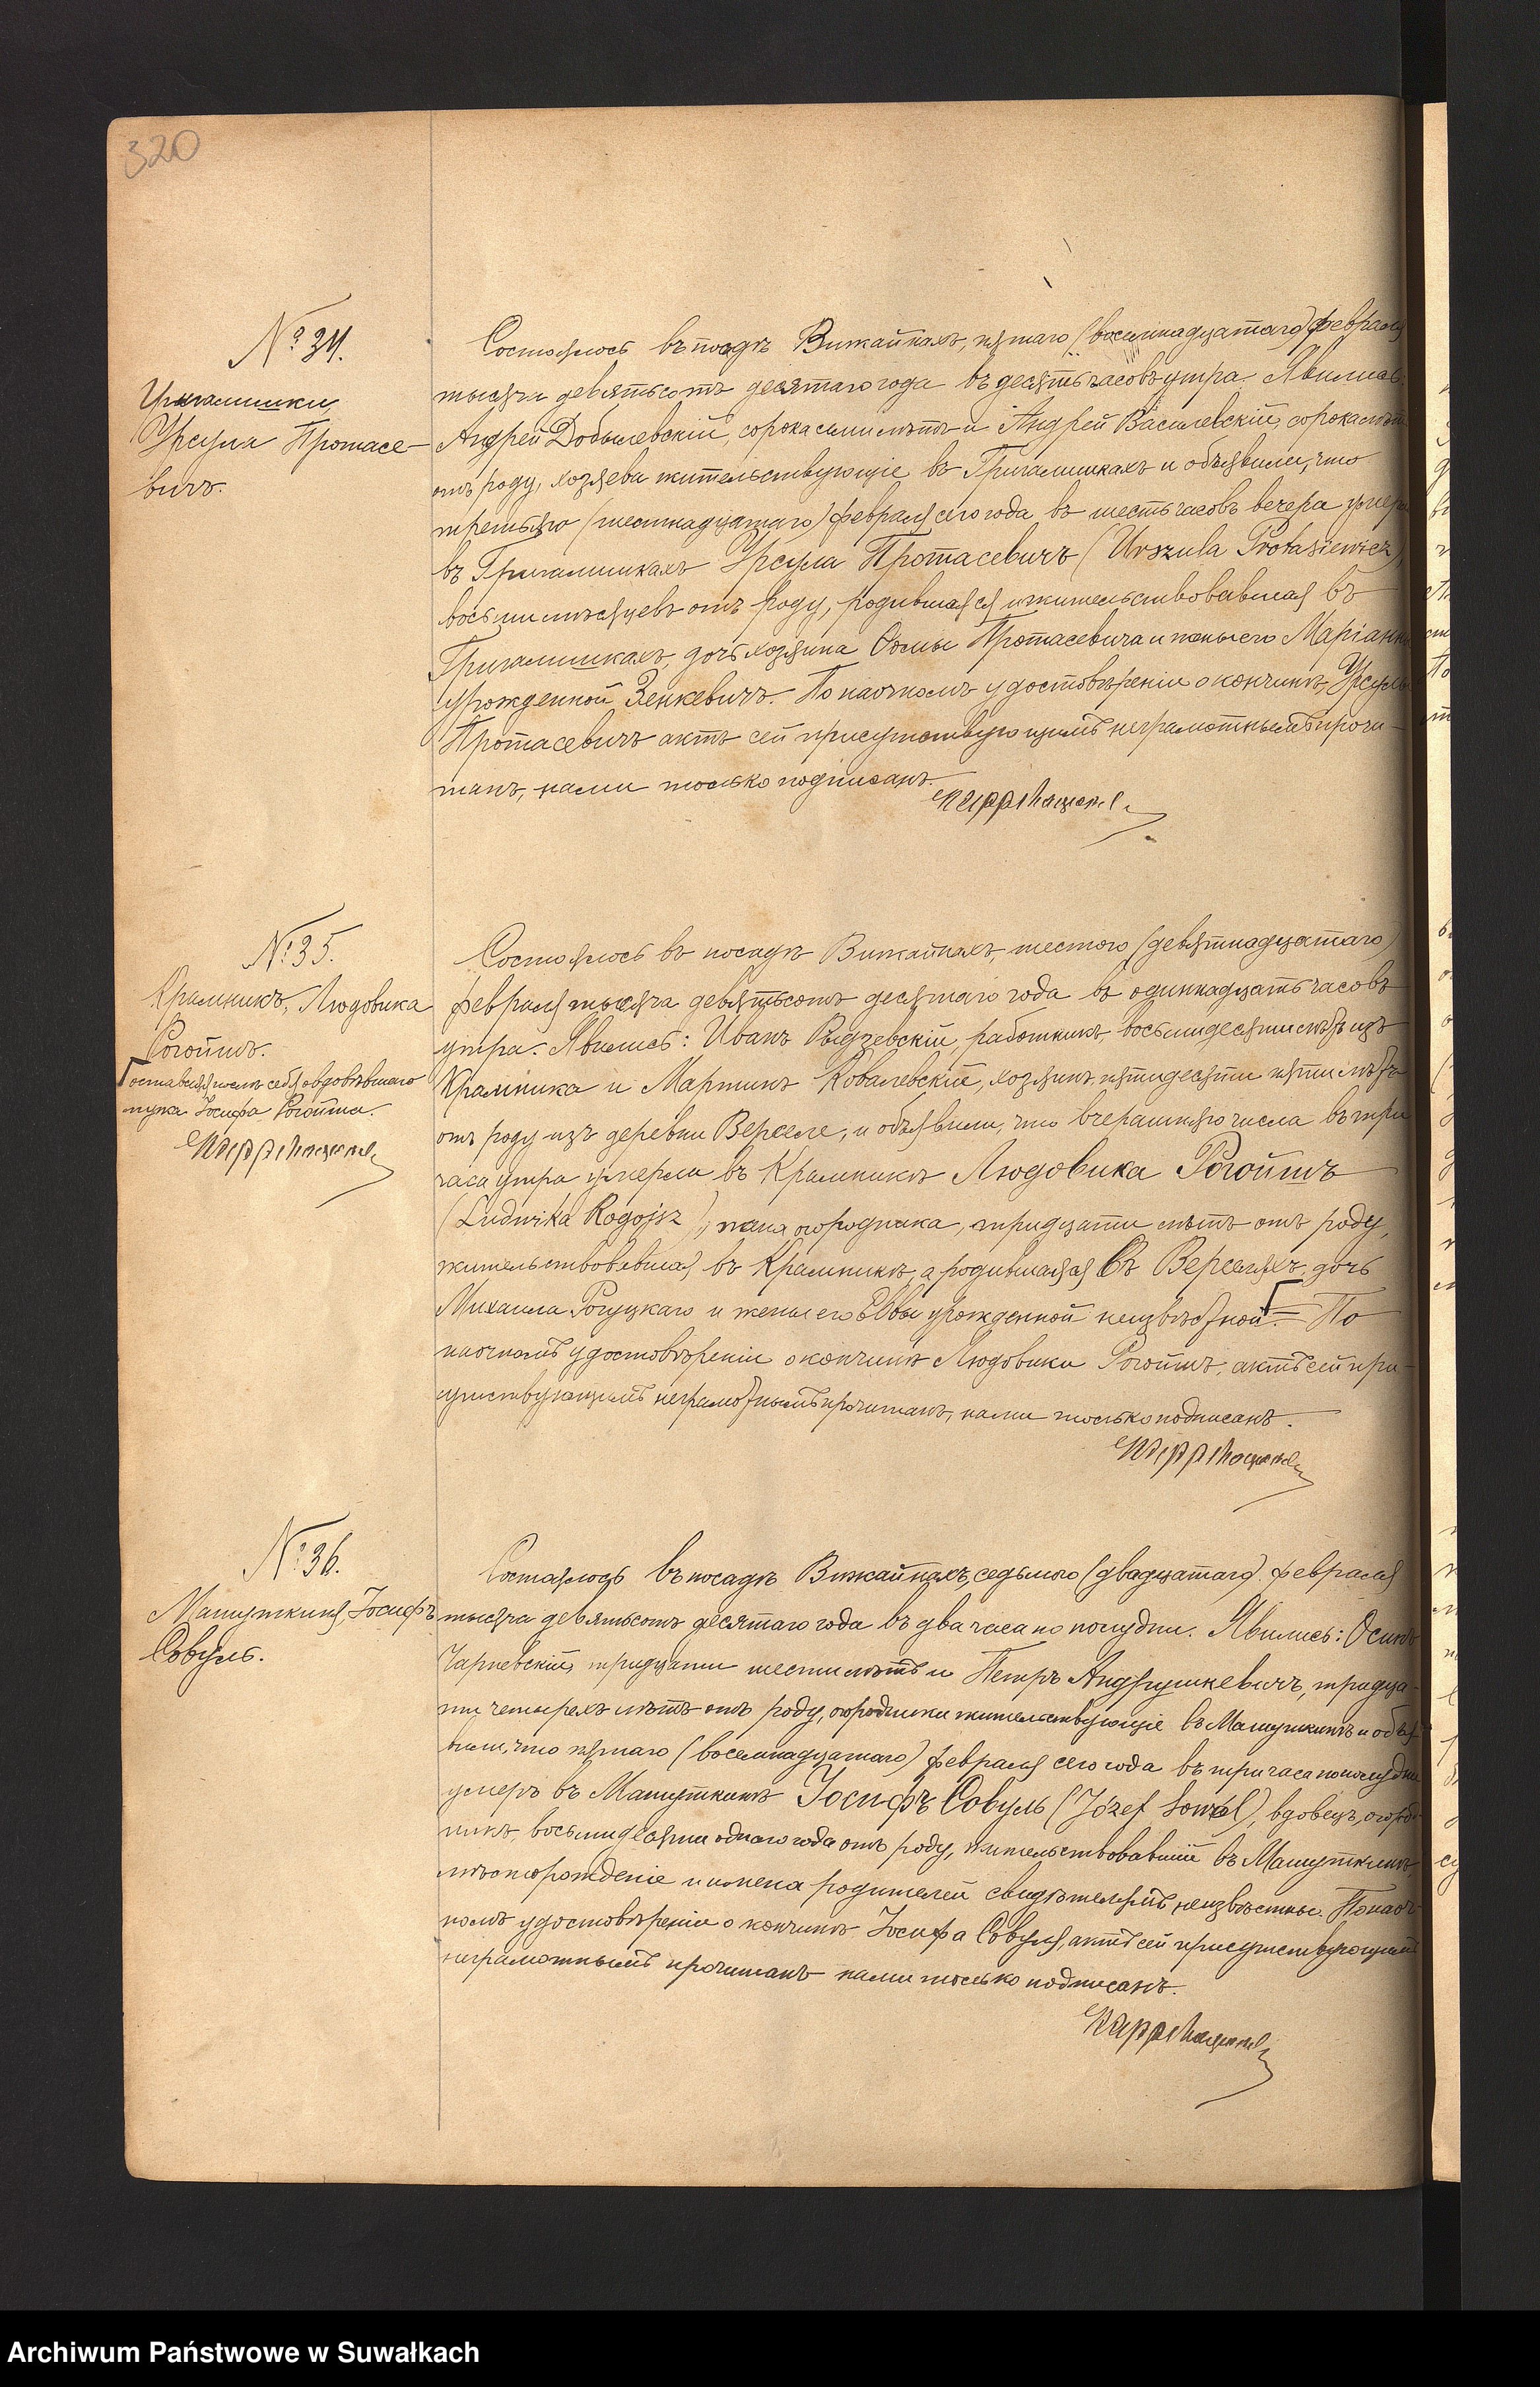 320
№ 34.
Григалишки
Урсула Протасе-
вичъ.
Состоялось въ посадѣ Вижайнахъ, пятаго (восемнадцатаго) февраля
тысяча девятьсотъ десятаго года въ десять часовъ утра. Явились:
Андрей Добылевскій, сорока семи лѣтъ и Андрей Василевскій, сорока лѣтъ
отъ роду, хозяева жительствующіе въ Григалишкахъ и объявили, что
третьяго (шестнадцатаго) февраля сего года въ шесть часовъ вечера умерла
въ Григалишкахъ Урсула Протасевичъ (Urszula Protasiewicz),
восьми мѣсяцевъ отъ роду, родившаяся и жительствовавшая въ
Григалишкахъ, дочь хозяина Ѳомы Протасевича и жены его Маріанны
урожденной Зенкевичъ. По наочномъ удостовѣреніи о кончинѣ Урсулы
Протасевичъ актъ сей присутствующимъ неграмотнымъ прочи-
танъ, нами только подписанъ.
№ 35.
Крамникъ, Людовика
Рогойшъ.
Г оставивъ послѣ себя овдовѣвшаго
мужа Іосифа Рогойша.
Состоялось въ посадѣ Вижайнахъ, шестого (девятнадцатаго)
февраля тысяча девятьсотъ десятаго года въ одиннадцать часовъ
утра. Явились: Иванъ Выдзевскій, работникъ, восьмидесяти лѣтъ изъ
Крамника и Мартинъ Ковалевскій, хозяинъ, пятидесяти пяти лѣтъ
отъ роду изъ деревни Версели, и объявили, что вчерашняго числа въ три
часа утра умерла въ Крамникѣ Людовика Рогойшъ
(Ludwika Rogojsz), жена огородника, тридцати лѣтъ отъ роду,
жительствовавшая въ Крамникѣ, а родившаяся въ Верселяхъ, дочь
Михаила Рогуцкаго и жены его Евы урожденной неизвѣстной. Г По
наочномъ удостовѣреніи о кончинѣ Людовики Рогойшъ, актъ сей при-
сутствующимъ неграмотнымъ прочитанъ, нами только подписанъ.
№ 36.
Машуткиня, Іосифъ
Совуль.
Состоялось въ посадѣ Вижайнахъ, седьмого (двадцатаго) февраля
тысяча девятьсотъ десятаго года въ два часа по полудни. Явились: Осипъ
Чарневскій, тридцати шести лѣтъ и Петръ Андрушкевичъ, тридца-
ти четырехъ лѣтъ отъ роду, огородники жительствующіе въ Машуткинѣ и объя-
вили, что пятаго (восемнадцатаго) февраля сего года въ три часа по полудни
умеръ въ Машуткинѣ Іосифъ Совуль (Józef Sowul), вдовецъ, огород-
никъ, восьмидесяти одного года отъ роду, жительствовавшій въ Машуткинѣ,
мѣсторожденіе и имена родителей свидѣтелямъ неизвѣстны. По наоч-
номъ удостовѣреніи о кончинѣ Іосифа Совуля, актъ сей присутствующимъ
неграмотнымъ прочитанъ нами только подписанъ.
Archiwum Państwowe w Suwałkach